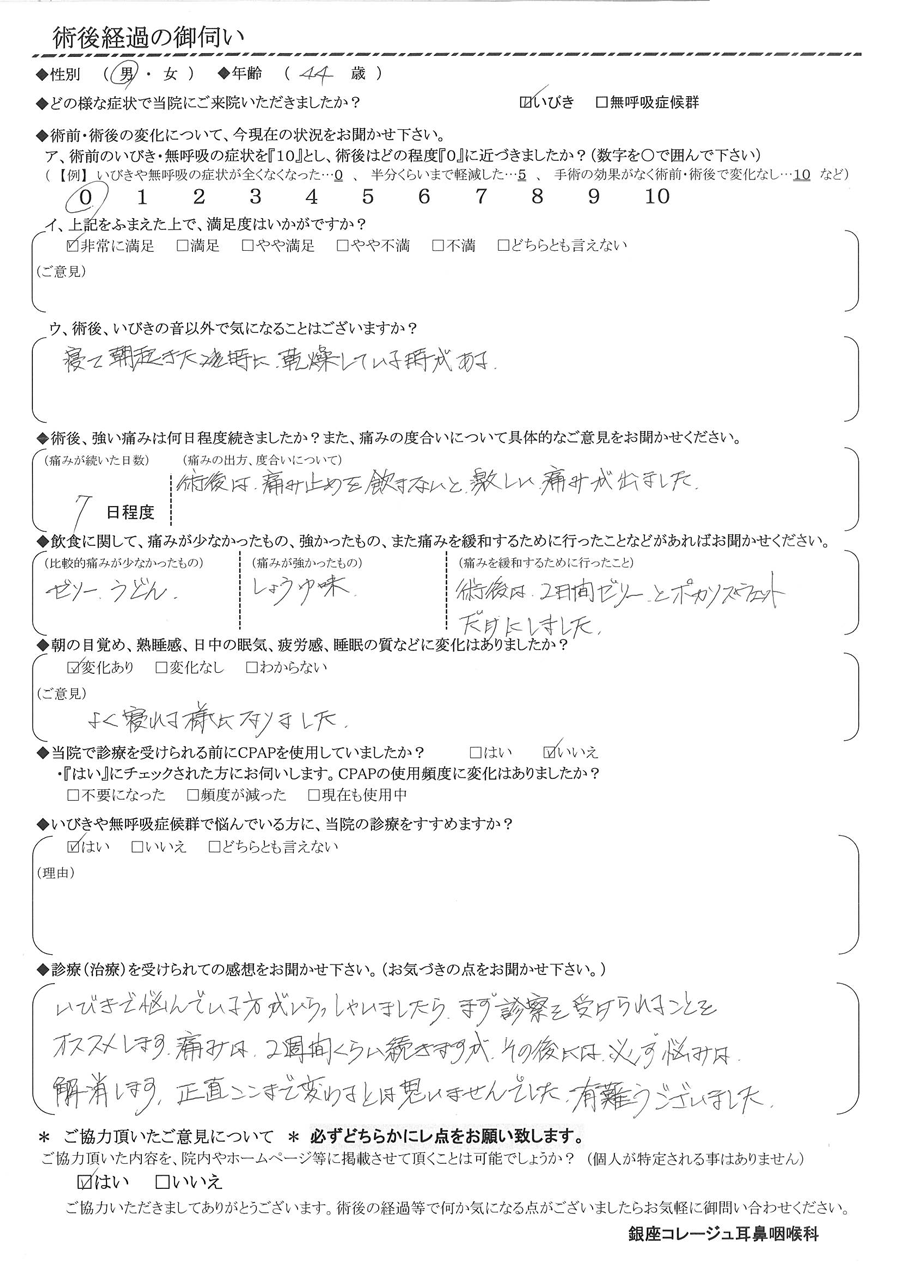 術後経過の御伺い
◆性別 (男・女) ◆年齢 (44 歳)
◆どの様な症状で当院にご来院いただきましたか? ☑いびき □無呼吸症候群
◆術前・術後の変化について、今現在の状況をお聞かせ下さい。
ア、術前のいびき・無呼吸の症状を『10』とし、術後はどの程度『0』に近づきましたか?(数字を〇で囲んで下さい)
(【例】いびきや無呼吸の症状が全くなくなった…0 、 半分くらいまで軽減した…5 、 手術の効果がなく術前・術後で変化なし…10 など)
0 1 2 3 4 5 6 7 8 9 10
イ、上記をふまえた上で、満足度はいかがですか?
☑非常に満足 □満足 □やや満足 □やや不満 □不満 □どちらとも言えない
(ご意見)
ウ、術後、いびきの音以外で気になることはございますか?
寝て朝起きた時に、乾燥している時がある.
◆術後、強い痛みは何日程度続きましたか?また、痛みの度合いについて具体的なご意見をお聞かせください。
(痛みが続いた日数) (痛みの出方、度合いについて)
術後は、痛み止めを飲まないと、激しい痛みが出ました.
7 日程度
◆飲食に関して、痛みが少なかったもの、強かったもの、また痛みを緩和するために行ったことなどがあればお聞かせください。
(比較的痛みが少なかったもの) (痛みが強かったもの) (痛みを緩和するために行ったこと)
ゼリー、うどん. しょうゆ味. 術後は、2日間ゼリーとポカリスウェット
だけにしました.
◆朝の目覚め、熟睡感、日中の眠気、疲労感、睡眠の質などに変化はありましたか?
☑変化あり □変化なし □わからない
(ご意見)
よく寝れる様になりました.
◆当院で診療を受けられる前にCPAPを使用していましたか? □はい ☑いいえ
・『はい』にチェックされた方にお伺いします。CPAPの使用頻度に変化はありましたか?
□不要になった □頻度が減った □現在も使用中
◆いびきや無呼吸症候群で悩んでいる方に、当院の診療をすすめますか?
☑はい □いいえ □どちらとも言えない
(理由)
◆診療(治療)を受けられての感想をお聞かせ下さい。(お気づきの点をお聞かせ下さい。)
いびきで悩んでいる方がいらっしゃいましたら、まず診察を受けられることを
オススメします. 痛みは、2週間くらい続きますが、その後には、必ず悩みは、
解消します. 正直ここまで変わるとは思いませんでした. 有難うございました.
＊ ご協力頂いたご意見について ＊ 必ずどちらかにレ点をお願い致します。
ご協力頂いた内容を、院内やホームページ等に掲載させて頂くことは可能でしょうか? (個人が特定される事はありません)
☑はい □いいえ
ご協力いただきましてありがとうございます。術後の経過等で何か気になる点がございましたらお気軽に御問い合わせください。
銀座コレージュ耳鼻咽喉科